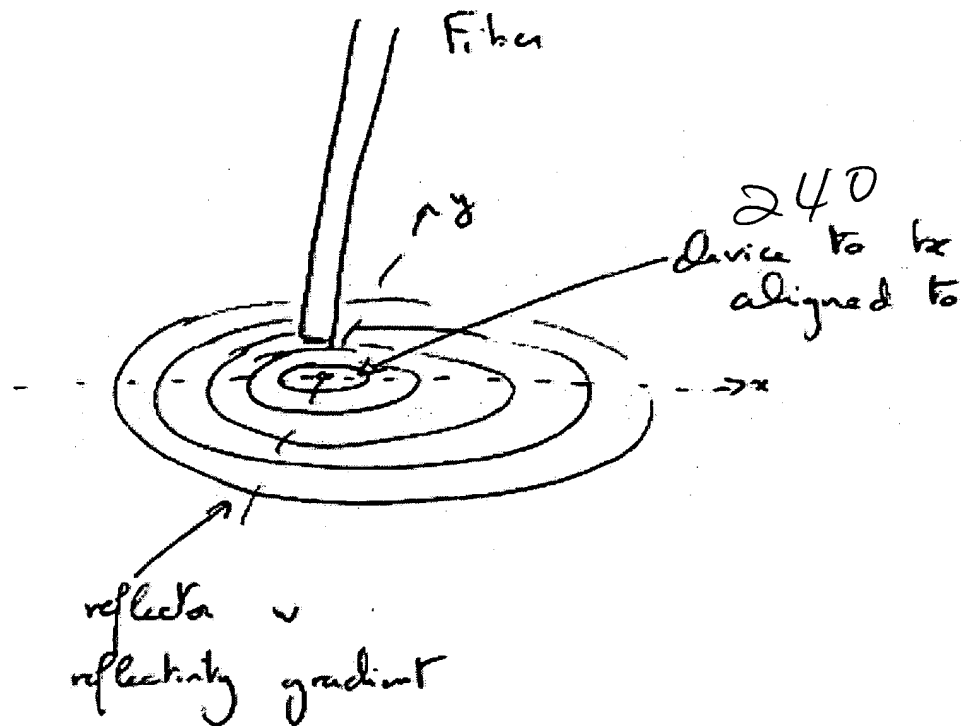 Fiber
y
240
device to be
aligned to
x
reflector
reflectivity gradient